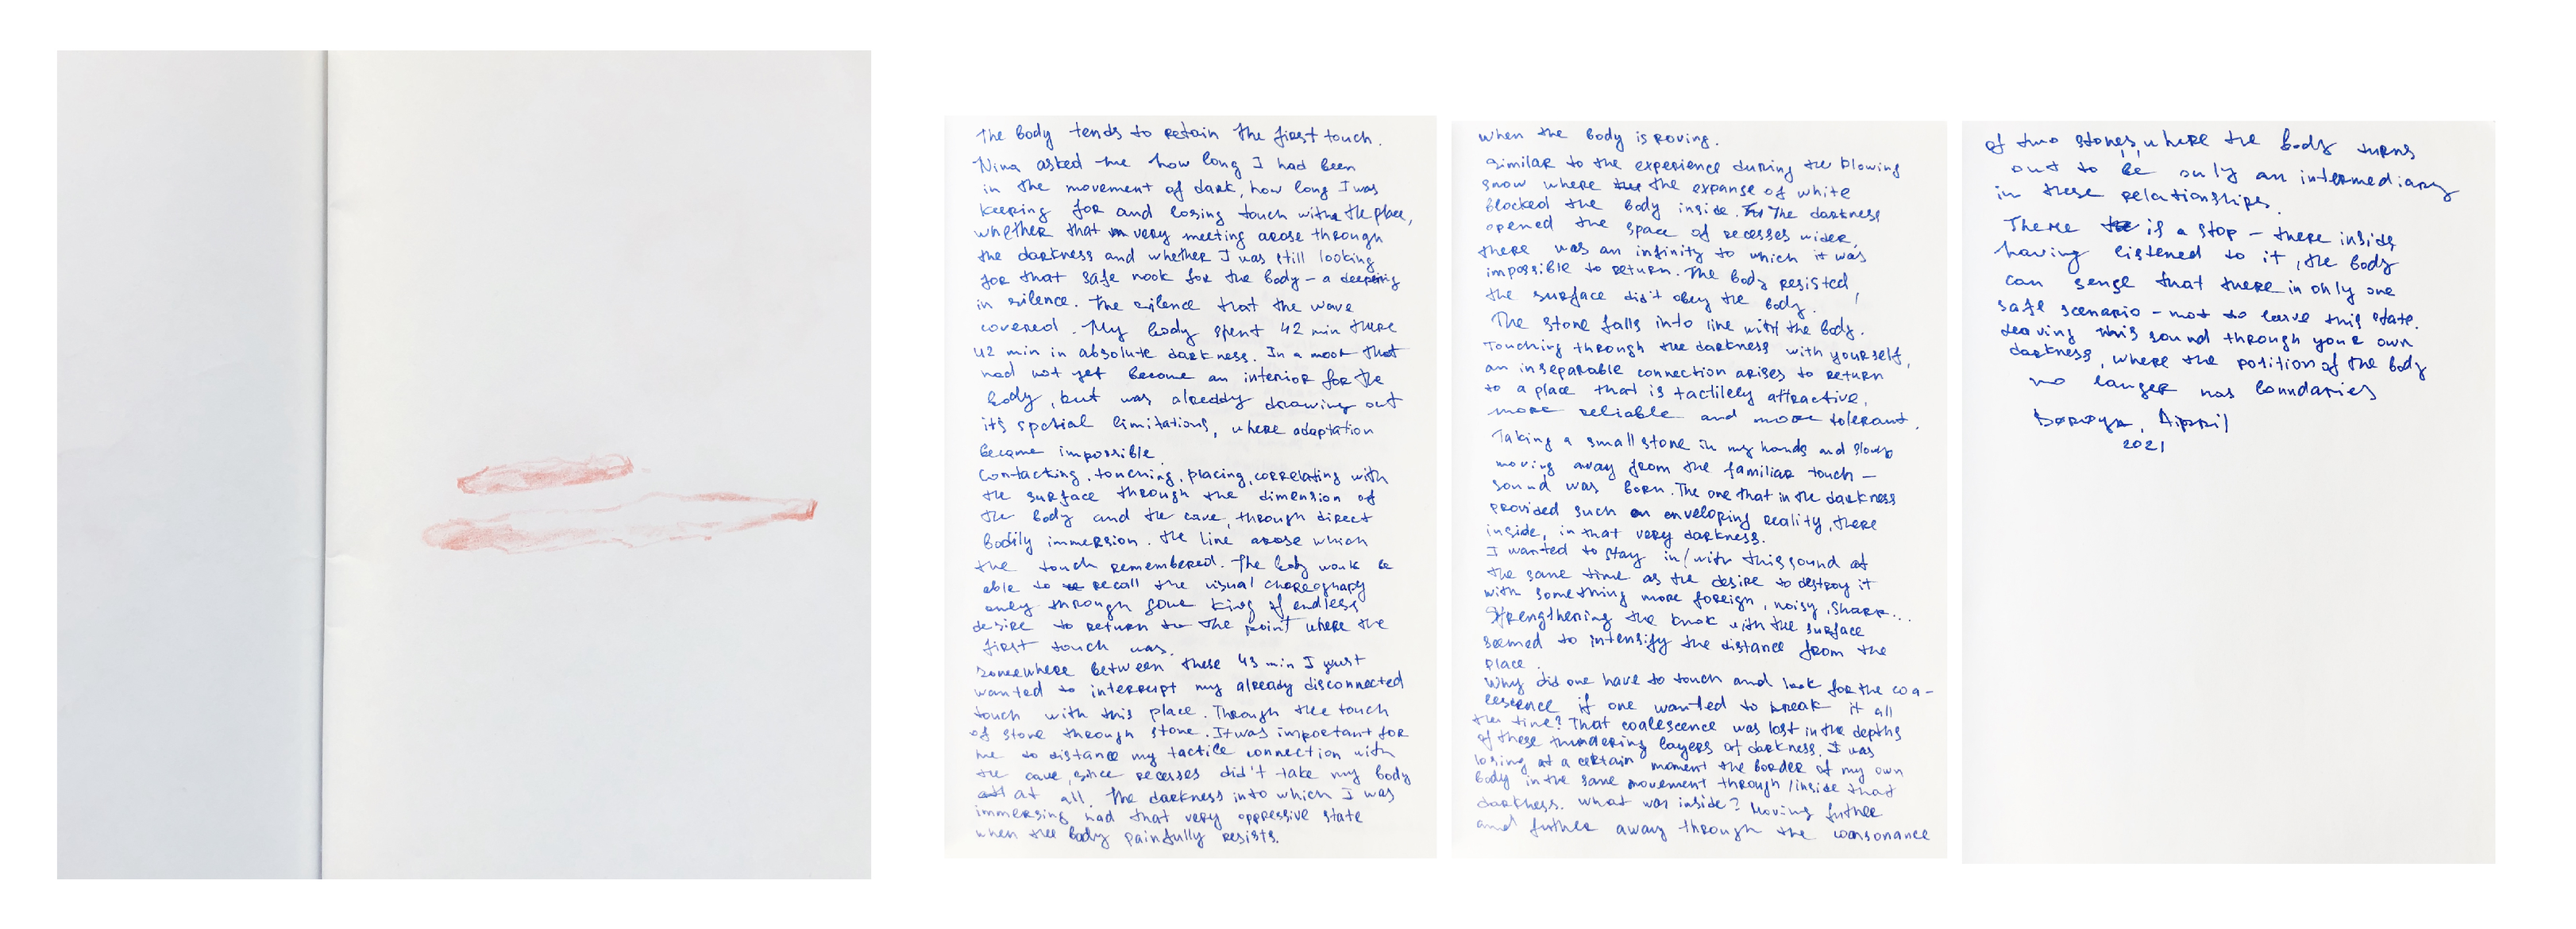 The body tends to retain the first touch.
Nina asked me how long I had been
in the movement of dark, how long I was
keeping for and losing touch with the place,
whether that very meeting arose through
the darkness and whether I was still looking
for that safe nook for the body – a deepening
in silence. The silence that the wave
covered. My body spent 42 min there
42 min in absolute darkness. In a moot that
had not yet become an interior for the
body, but was already drawing out
it's spatial limitations, where adaptation
became impossible.
Contacting, touching, placing, correlating with
the surface through the dimension of
the body and the cave, through direct
bodily immersion. The line arose which
the touch remembered. The body would be
able to recall the visual choreography
only through some king of endless
desire to return to the point where the
first touch was.
Somewhere between these 43 min I just
wanted to interrupt my already disconnected
touch with this place. Through the touch
of stone through stone. It was important for
me to distance my tactile connection with
the cave, since recesses did't take my body
at all. The darkness into which I was
immersing had that very oppressive state
when the body painfully resists.
when the body is roving.
Similar to the experience during the blowing
snow where the expanse of white
blocked the body inside. The darkness
opened the space of recesses wider,
there was an infinity to which it was
impossible to return. The body resisted,
the surface did't obey the body.
The stone falls into line with the body.
Touching through the darkness with yourself,
an inseparable connection arises to return
to a place that is tactilely attractive,
more reliable and more tolerant.
Taking a small stone in my hands and slowly
moving away from the familiar touch –
sound was born. The one that in the darkness
provided such an enveloping reality, there
inside, in that very darkness.
I wanted to stay in/with this sound at
the same time as the desire to destroy it
with something more foreign, noisy, sharp...
Strengthening the knok with the surface
seemed to intensify the distance from the
place.
Why did one have to touch and look for the coa-
lescence if one wanted to break it all
the time? That coalescence was lost in the depths
of these thundering layers of darkness. I was
losing at a certain moment the border of my own
body in the same movement through/inside that
darkness. What was inside? Moving futher
and futher away through the consonance
of two stones, where the body turns
out to be only an intermediary
in these relationships.
There is a stop – there inside,
having listened to it, the body
can sense that there is only one
safe scenario – not to leave this state.
Leaving this sound through your own
darkness, where the position of the body
no longer has boundaries
April
2021